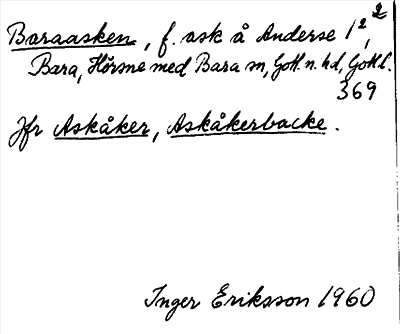 Baraasken, f. ask å Anderse 1², 2
Bara, Hörsne med Bara sn, Gotl. n. hd, Gotl.
369
Jfr Askåker, Askåkerbacke.
Inger Eriksson 1960